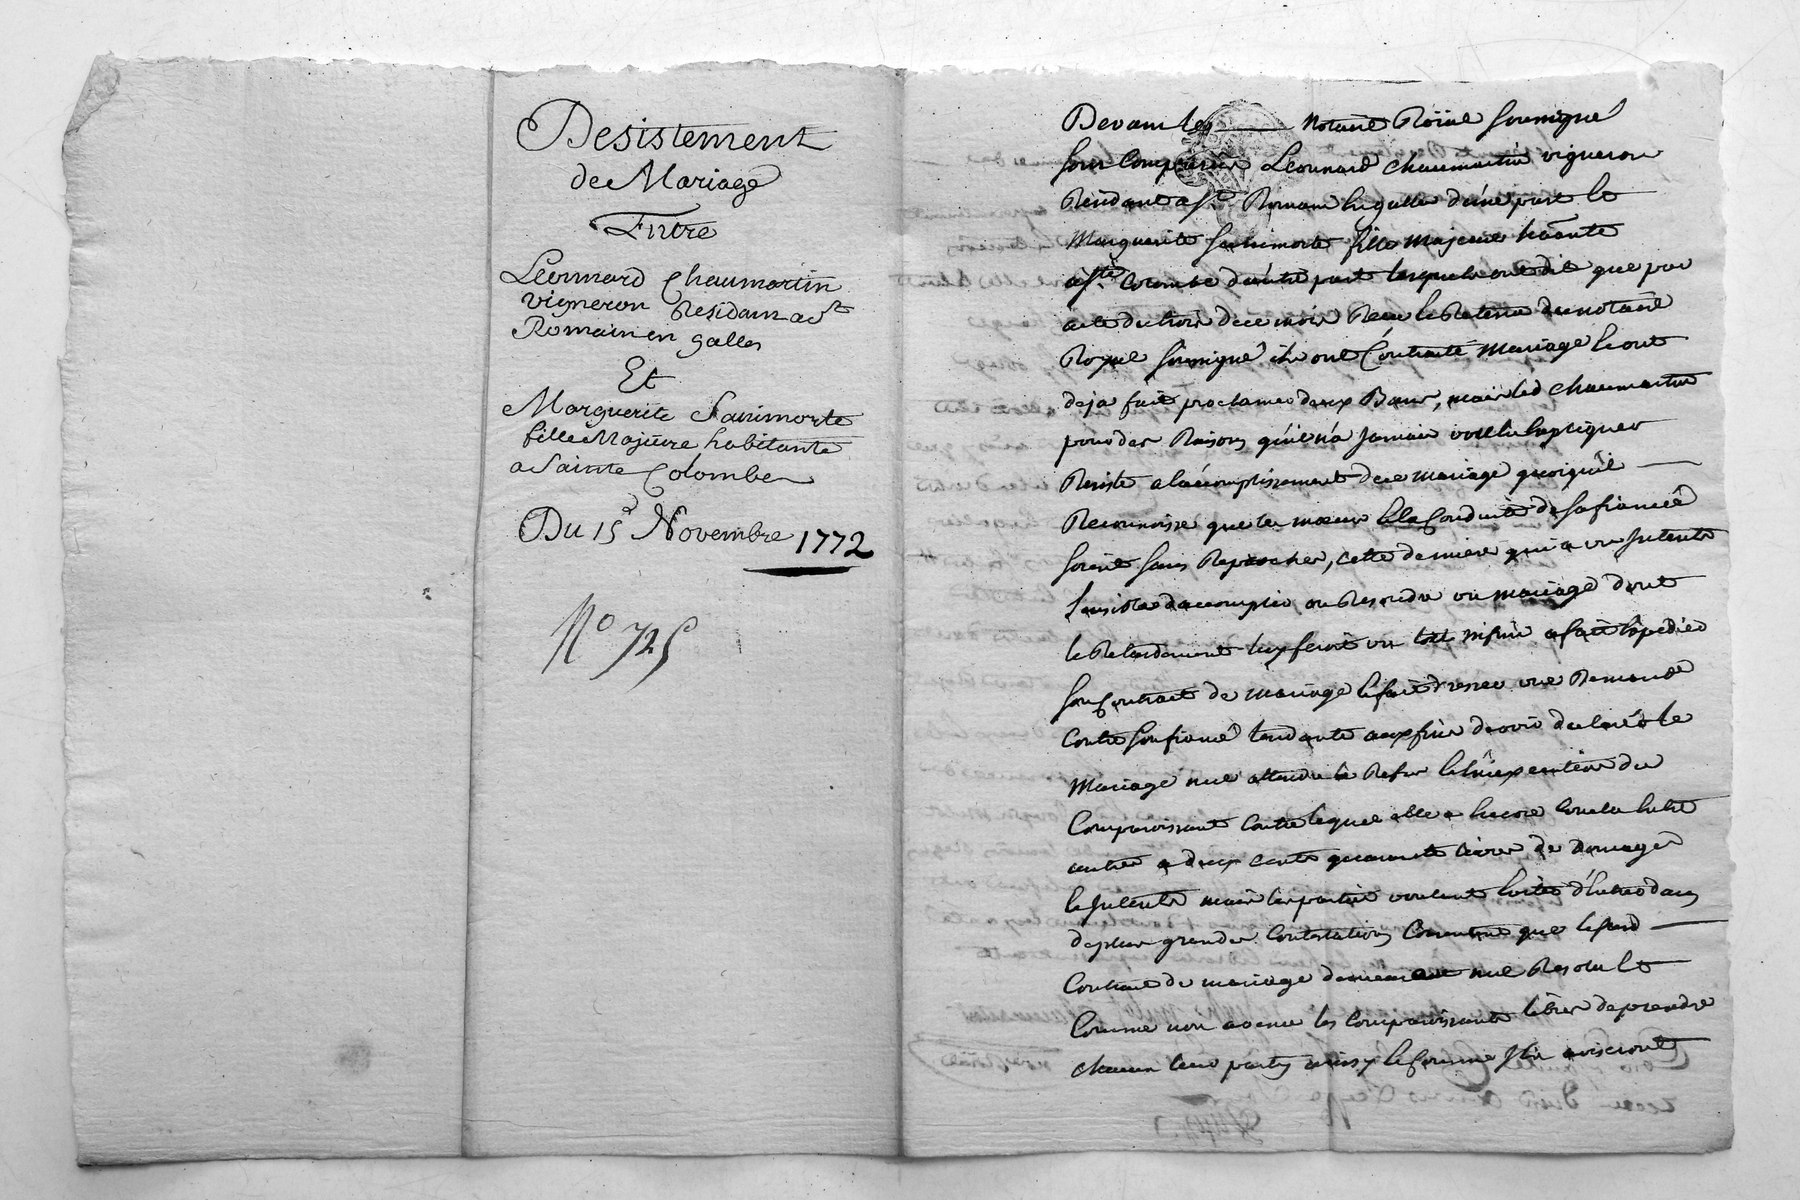 Desistement
de Mariage
Entre
Leonnard Chaumartin
vigneron Residant a St
Romain en galles
Et
Marguerite Sanimorte
fille Majeure habitante
a Sainte Colombe
Du 15 Novembre 1772
No 725
Devant les notaire Roial Soussigné
sont comparus Leonnard chaumartin vigneron
Residant a St Romain en galle d'une part Et
Marguerite Sanimorte fille Majeure habitante
a Ste Colombe d'autre part lesquels ont dit que par
acte du trois de ce mois Recu le notaire
Royal soussigné ils ont Contracté Mariage Et ont
deja fait proclamer deux Bans, mais led chaumartin
pour des Raisons qu'il n'a Jamais voulu Expliquer
Resiste a l'acomplissement de ce mariage quoiqu'il
Reconnoisse que les mœurs Et la Conduite de sa fiancée
soient sans Reproches, cette derniere qui a un Interest
sensible d'accomplir ou Resoudre un mariage dont
le Retardement luy feroit un tort infini a fait Expedier
son Contract de mariage Et fait dresser une Demande
Contre son fiancé tendante aux fins de voir declarer le
Mariage nul attendu le Refus Et l'inexecution du
Comparoissant Contre lequel elle a Encore Conclu Entre
autres a deux cents quarante livres de Domages
Et Interests mais les parties voulant Eviter d'Entrer dans
de plus grandes Contestations Consentent que led
Contract de mariage demeure nul Resolu Et
Comme non avenu les Comparoissants libres de prendre
chacun leur party ainsy Et Comme Ils aviseront